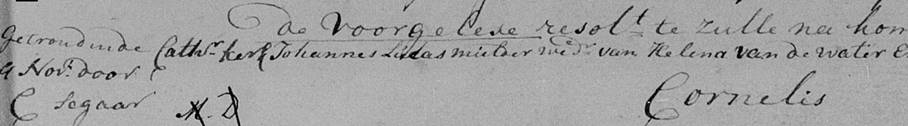 De Voorgelese resolt te zulle na kom
Getroud inde Cathr. kerk Johannes Lucas mulder wedr. van Helena van de water E
9 Novr. door
C segaar M. D Cornelis